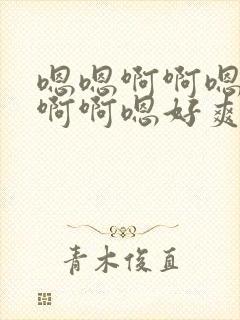 嗯嗯啊啊嗯
啊啊嗯好爽
青木俊直